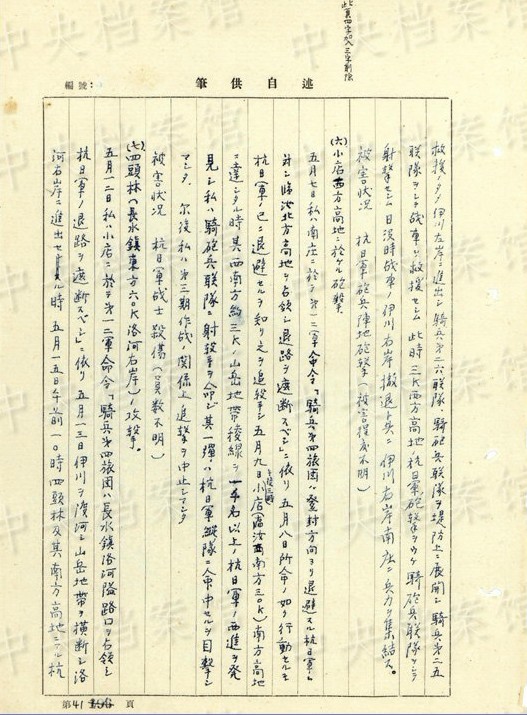 此頁四字加入三字削除
述自供筆
編號：
救援ノタメ伊川左岸ニ進出シ騎兵第二六联隊、騎砲兵联隊ヲ堤防上ニ展開シ騎兵第二五
联隊ヲシテ战車ヲ救援セシム 此時三K西方高地ノ杭日軍砲 射撃ヲウケ騎砲兵联隊ヲシテ
射撃セシム日没時战車ノ伊川右岸撤退ト共ニ伊川右岸南庄ニ兵力ヲ集結ス。
被害状况 杭日軍砲兵陣地砲撃（被害程度不明）
(六)小店西方高地ニ於ケル砲撃
五月七日私ハ南庄ニ於テ第一二軍命令「騎兵第四旅团ハ登封方向ヨリ退避スル杭日軍ニ
対シ临汝北方高地ヲ占領シ退路ヲ遮断スベシ」ニ依リ五月八日所命ノ如ク行動セルモ
杭日軍ノ已ニ退避セルヲ知リ之ヲ追撃シ五月九日 小店(临汝西南方三〇K)南方高地
ニ達シタル時其西南方約三Kノ山岳地帯稜線ヲ一千名以上ノ杭日軍ノ西進ヲ発
見シ私ハ騎砲兵联隊ニ射撃ヲ命ジ其一弾ハ杭日軍縦隊ニ命中セルヲ目撃シ
マシタ。尔後私ハ第三期作战ノ関係上追撃ヲ中止シマシタ
被害状况 杭日軍战士 殺傷（員数不明）
(七)四頭林(長水鎮東方六〇K洛河右岸)ノ攻撃。
五月一二日私ハ小店ニ於テ第一二軍命令「騎兵第四旅团ハ長水鎮洛河隘路口ヲ占領シ
杭日軍ノ退路ヲ遮断スベシ」ニ依リ五月一三日伊川ヲ渡河シ山岳地帯ヲ横断シ洛
河右岸ニ進出セル時 五月一五日午前一〇時四頭林及其南方高地ニアル杭
第41頁